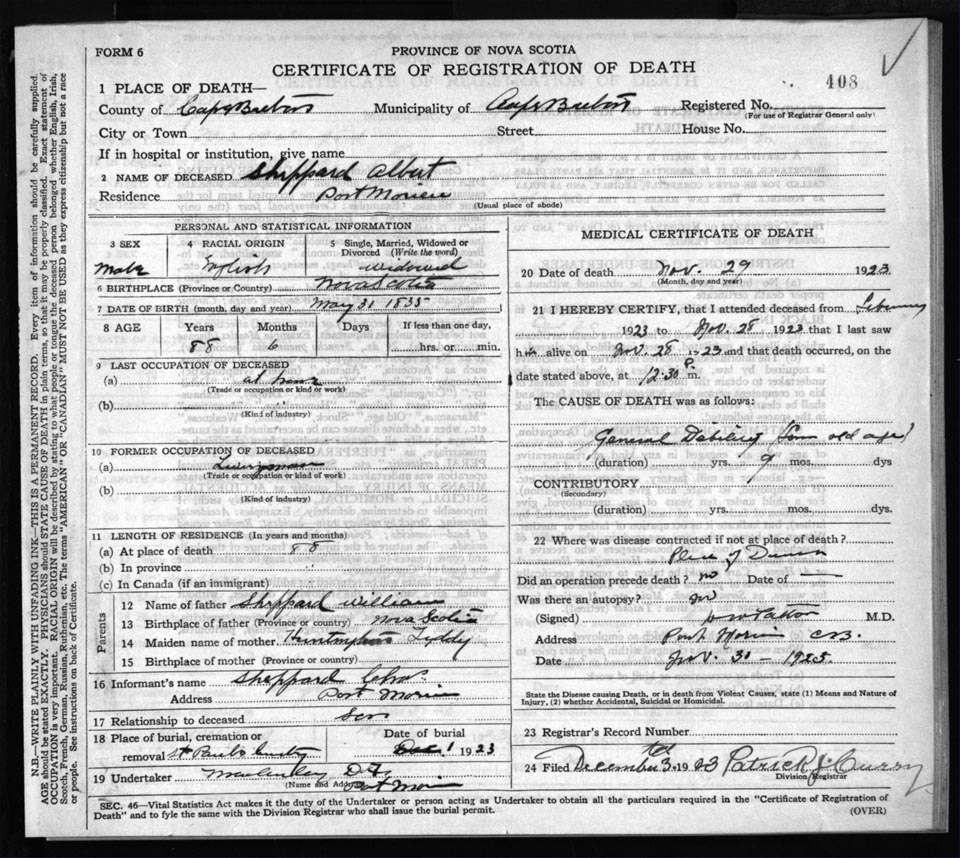 FORM 6
PROVINCE OF NOVA SCOTIA
CERTIFICATE OF REGISTRATION OF DEATH
408
1 PLACE OF DEATH—
County of Cape Breton Municipality of Cape Breton Registered No.
(For use of Registrar General only)
City or Town Street House No.
If in hospital or institution, give name
2 NAME OF DECEASED Sheppard Albert
Residence Port Morien
(Usual place of abode)
PERSONAL AND STATISTICAL INFORMATION
3 SEX 4 RACIAL ORIGIN 5 Single, Married, Widowed or Divorced (Write the word)
Male widowed
6 BIRTHPLACE (Province or Country) Nova Scotia
7 DATE OF BIRTH (month, day and year) May 31 1835
8 AGE Years Months Days If less than one day,
88 6 hrs. or min.
9 LAST OCCUPATION OF DECEASED
(a) at home
(Trade or occupation or kind or work)
(b)
(Kind of industry)
10 FORMER OCCUPATION OF DECEASED
(a)
(Trade or occupation or kind of work)
(b)
(Kind of industry)
11 LENGTH OF RESIDENCE (In years and months)
(a) At place of death 88
(b) In province "
(c) In Canada (if an immigrant)
Parents
12 Name of father Sheppard William
13 Birthplace of father (Province or country) Nova Scotia
14 Maiden name of mother. Lyddy
15 Birthplace of mother (Province or country)
16 Informant's name Sheppard Chas.
Address Port Morien
17 Relationship to deceased Son
18 Place of burial, cremation or removal St Paul's Date of burial Dec 1 1923
19 Undertaker Port Morien
(Name and Address)
MEDICAL CERTIFICATE OF DEATH
20 Date of death Nov. 29 1923
(Month, day and year)
21 I HEREBY CERTIFY, that I attended deceased from
1923 to Nov. 28 1923 that I last saw
him alive on Nov. 28 1923 and that death occurred, on the
date stated above, at 12.30 P. m.
The CAUSE OF DEATH was as follows:
General Debility (from old age)
(duration) yrs. 9 mos. dys
CONTRIBUTORY
(Secondary)
(duration) yrs. mos. dys.
22 Where was disease contracted if not at place of death?
Place of
Did an operation precede death? no Date of —
Was there an autopsy? no
(Signed) M.D.
Address Port Morien C.B.
Date Nov. 31 — 1923
State the Disease causing Death, or in death from Violent Causes, state (1) Means and Nature of
Injury, (2) whether Accidental, Suicidal or Homicidal.
23 Registrar's Record Number
24 Filed December 3rd 1923 Patrick J Curry
Division Registrar
SEC. 46—Vital Statistics Act makes it the duty of the Undertaker or person acting as Undertaker to obtain all the particulars required in the "Certificate of Registration of
Death" and to fyle the same with the Division Registrar who shall issue the burial permit.
(OVER)
N.B.—WRITE PLAINLY WITH UNFADING INK—THIS IS A PERMANENT RECORD. Every item of information should be carefully supplied.
AGE should be stated EXACTLY. PHYSICIANS should STATE CAUSE OF DEATH in plain terms, so that it may be properly classified. Exact statement of
OCCUPATION is very important. RACIAL ORIGIN will be described by stating to what people or tongue the deceased person belonged whether English, Irish,
Scotch, French, German, Russian, Ruthenian, etc. The terms "AMERICAN" OR "CANADIAN" MUST NOT BE USED as they express citizenship but not a race
or people. See instructions on back of Certificate.